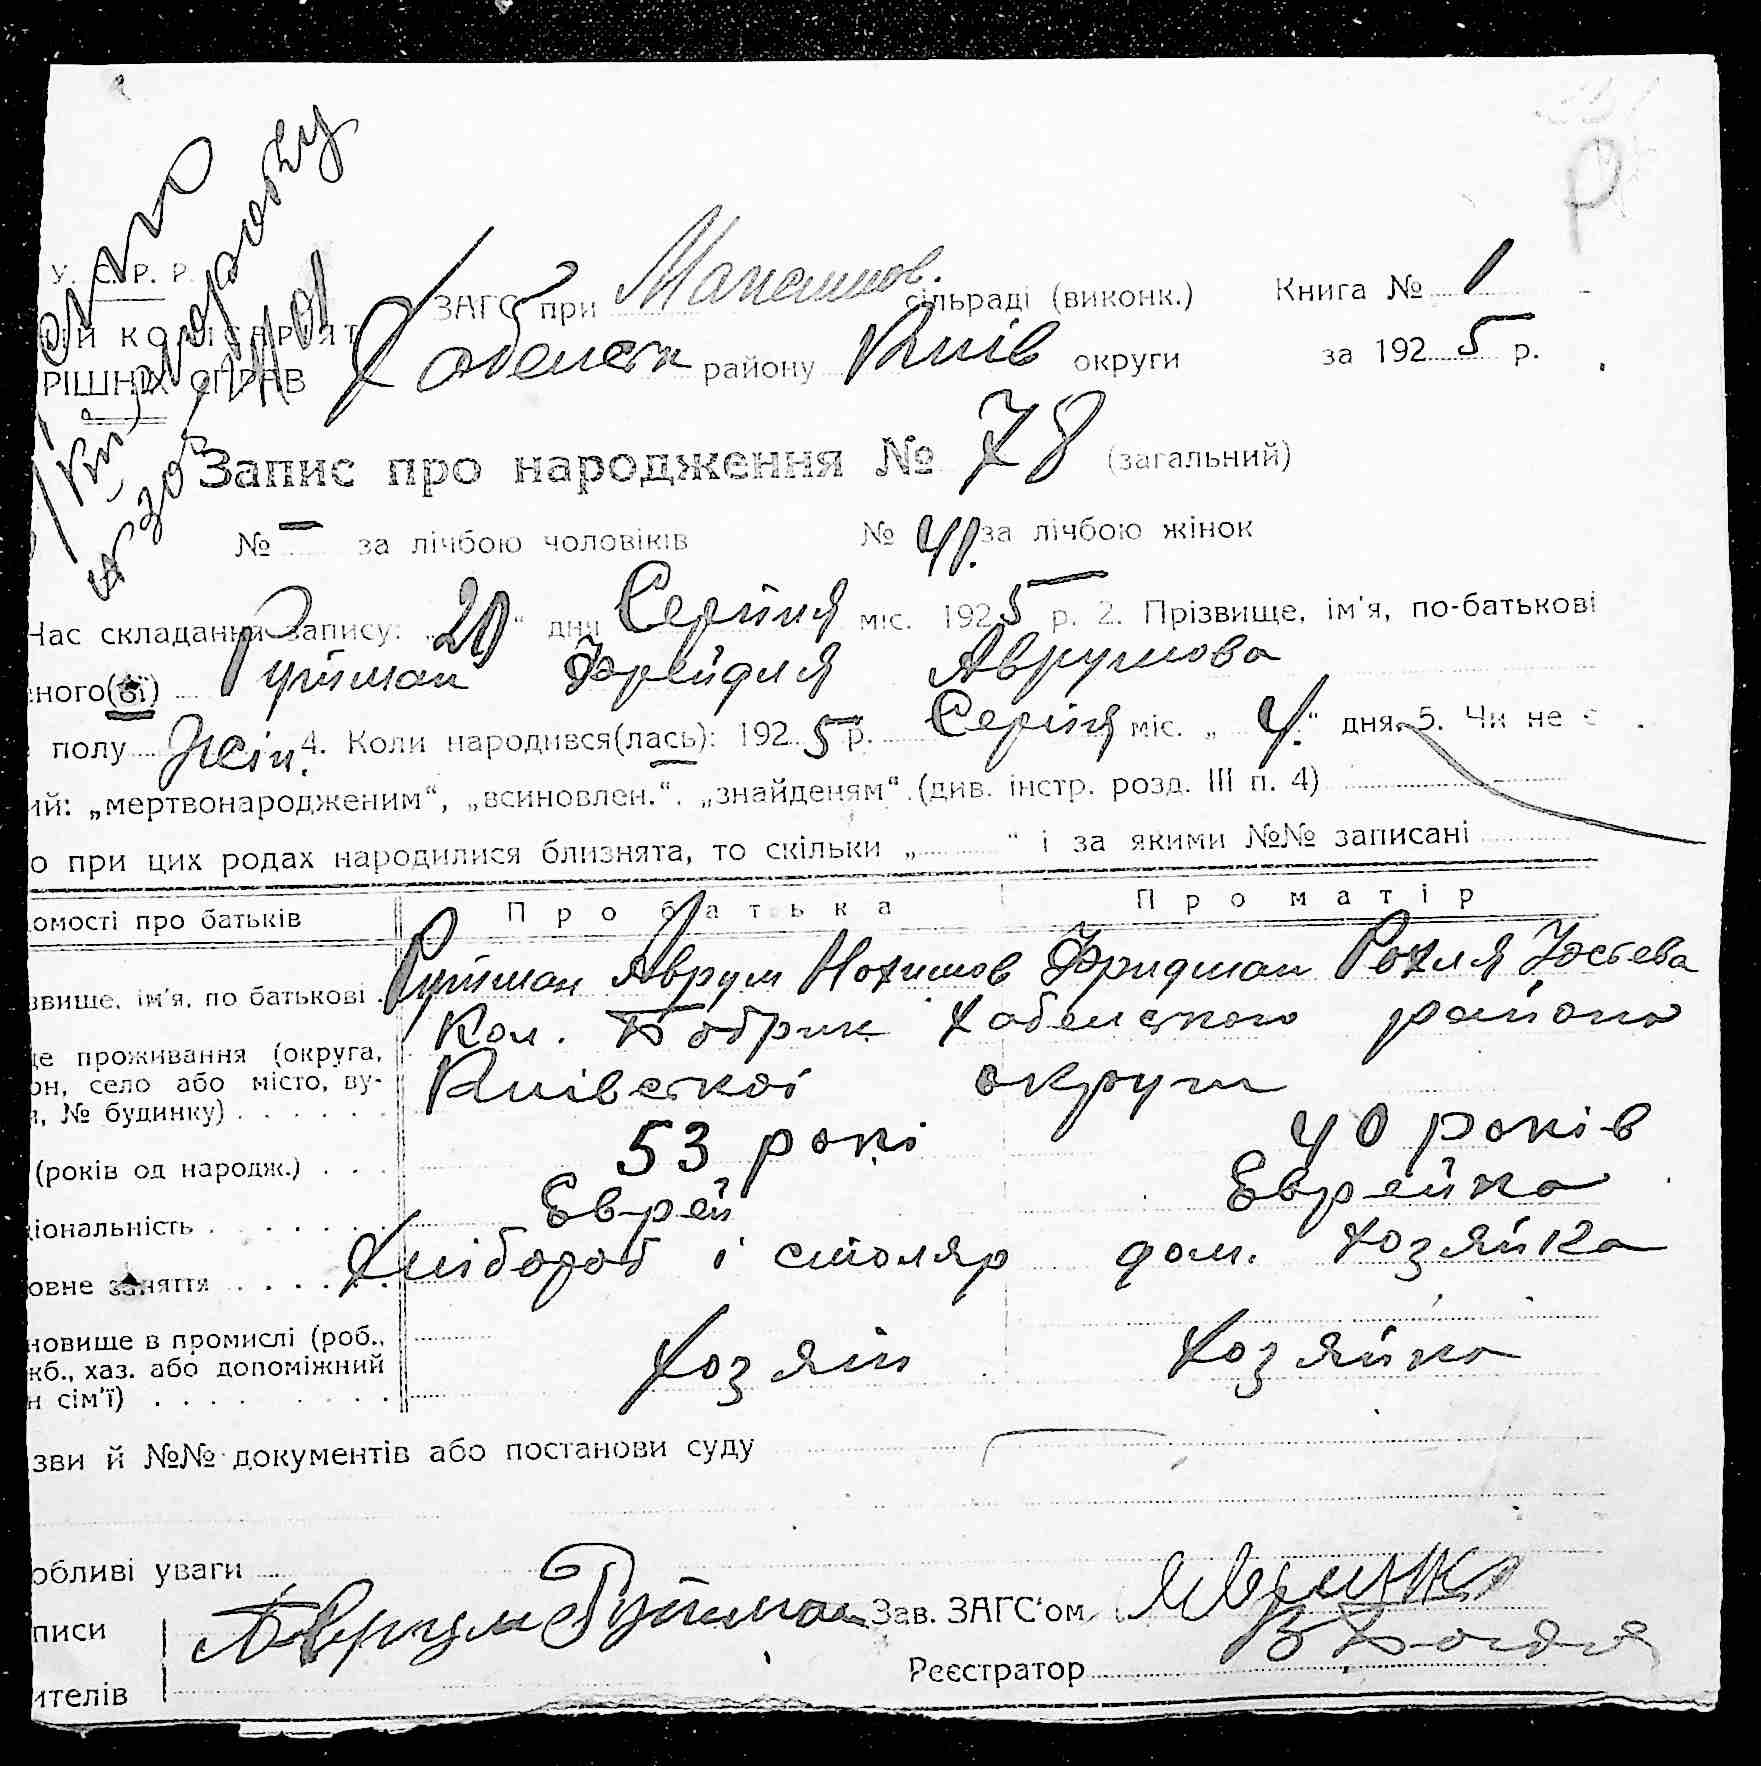 У. С. Р. Р.
ИЙ КОМІСАРІЯТ
РІШНІХ СПРАВ
ЗАГС при Максимов. сільраді (виконк.) Книга № 1
Хабенск району Київ округи за 1925 р.
Запис про народження № 78 (загальний)
№ — за лічбою чоловіків № 41. за лічбою жінок
Час складання запису: „20“ дня Серпня міс. 1925 р. 2. Прізвище, ім'я, по-батькові
еного(ої) Гутман Фрейдля Аврумова
полу Жін. 4. Коли народився(лась): 1925 р. Серпня міс. „4.“ дня. 5. Чи не є
ий: „мертвонародженим“, „всиновлен.“, „знайденям“ (див. інстр. розд. III п. 4)
о при цих родах народилися близнята, то скільки „ “ і за якими №№ записані
омості про батьків Про батька Про матір
звище, ім'я, по батькові Рутман Аврум Нохимов Фридман Рохля Иосева
це проживання (округа, Кол. Бобрик Хабенського района
он, село або місто, ву- Київської округи
№ будинку)
(років од народж.) 53 рокі 40 років
іональність Еврей Еврейка
овне заняття Хлібороб і столяр дом. хозяйка
новище в промислі (роб.,
кб., хаз. або допоміжний Хозяін Хозяйка
н сім'ї)
зви й №№ документів або постанови суду
обливі уваги
писи Аврум Рутман Зав. ЗАГС'ом
Реєстратор
ителів